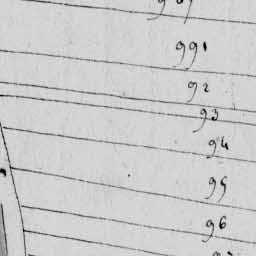 991
92
93
94
95
96